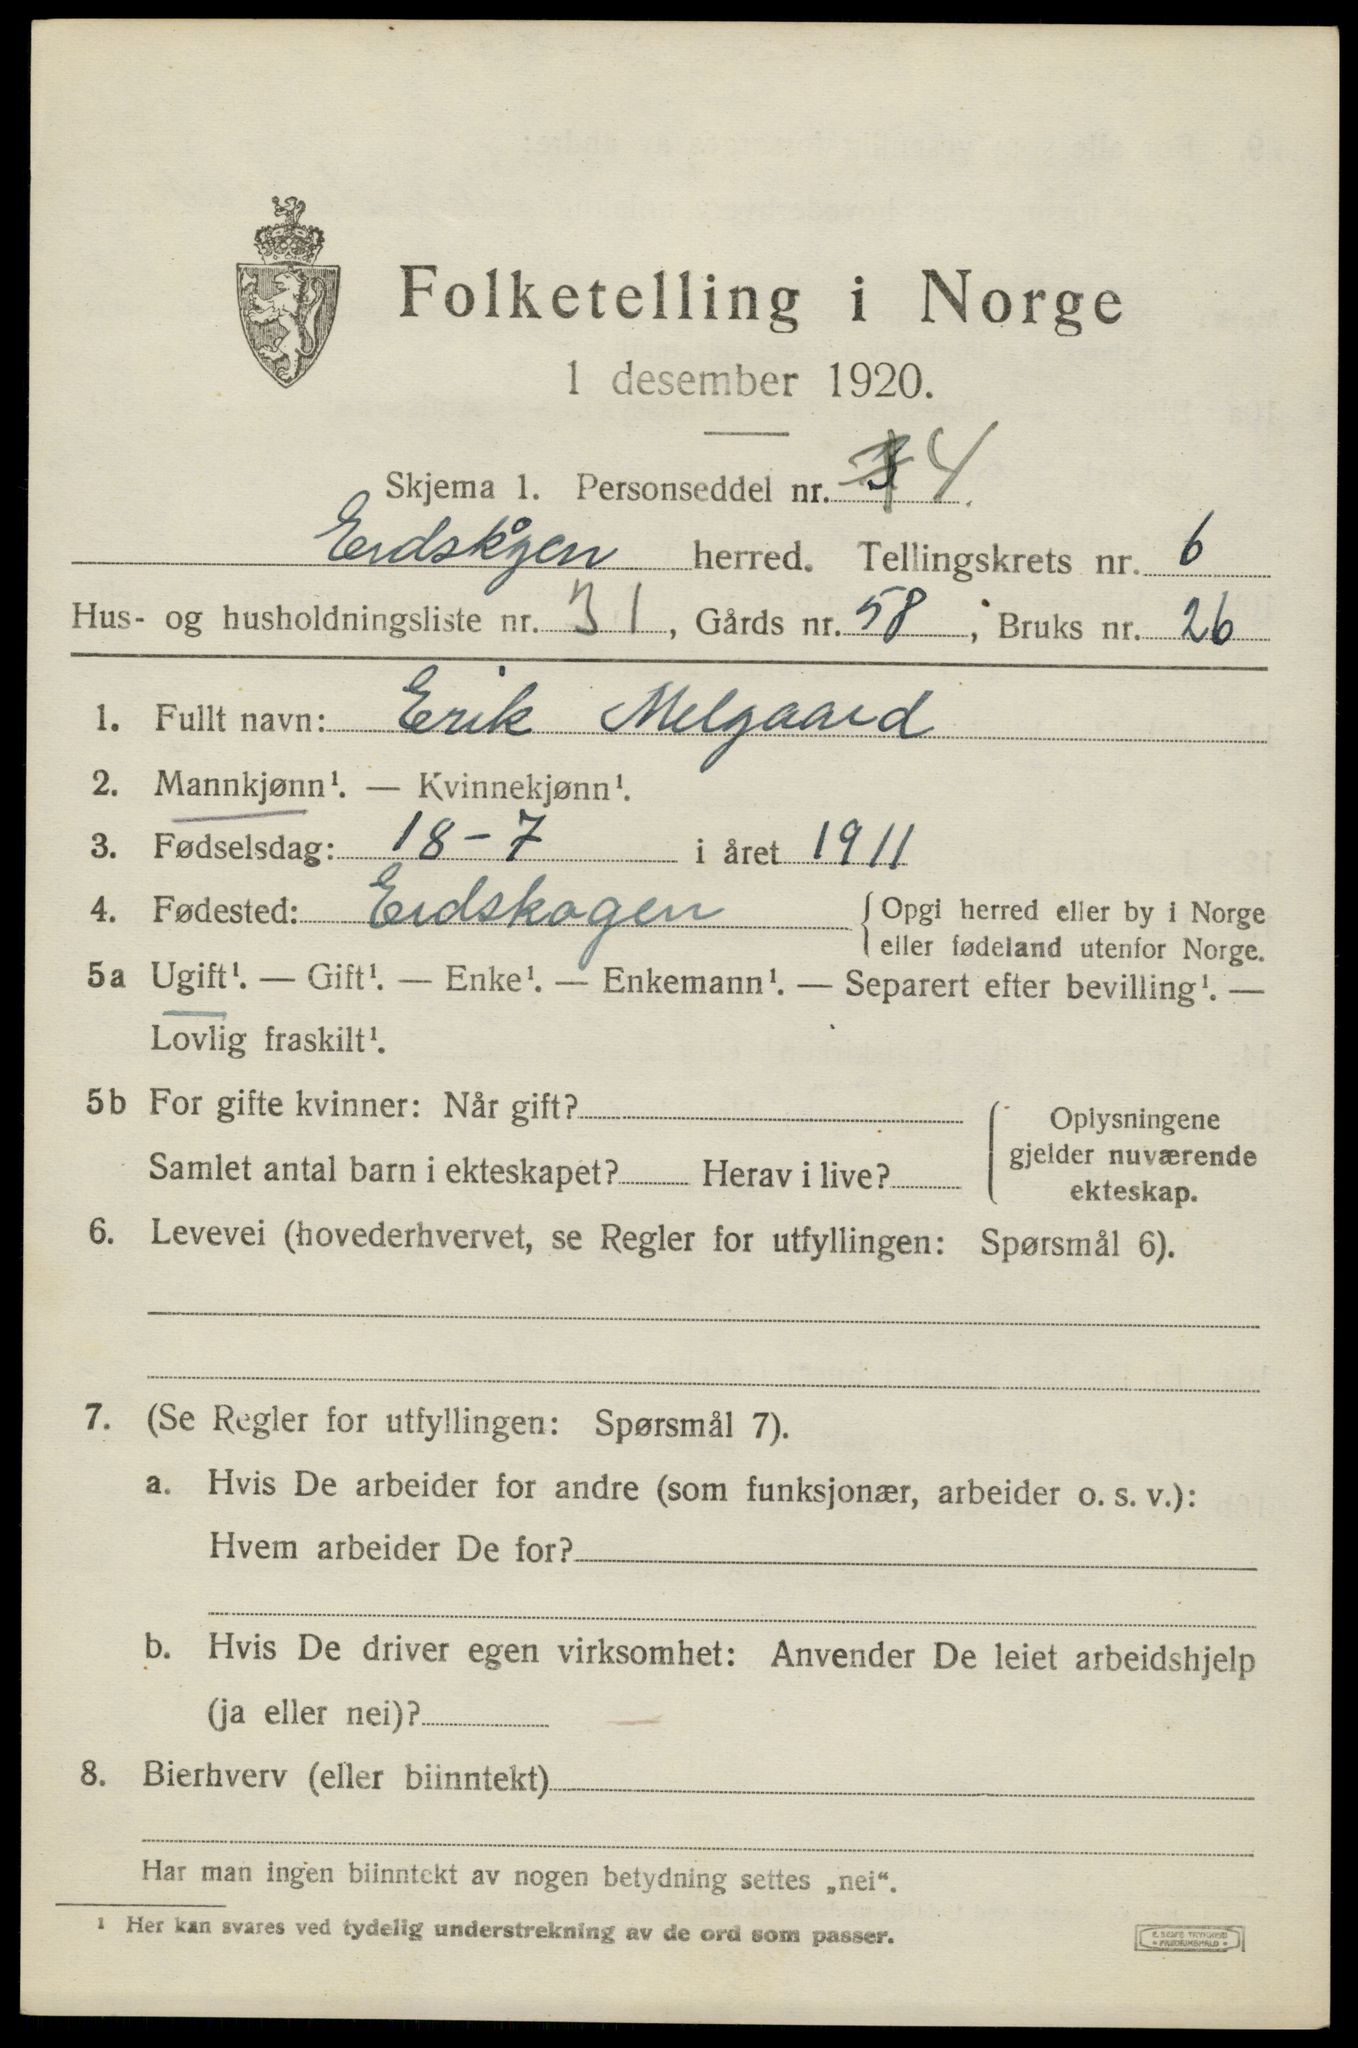 Folketelling i Norge
1 desember 1920.
Skjema 1. Personseddel nr. 4
Eidskogen herred. Tellingskrets nr. 6
Hus- og husholdningsliste nr. 31, Gårds nr. 58, Bruks nr. 26
1. Fullt navn: Erik Melgaard
2. Mannkjønn¹. — Kvinnekjønn¹.
3. Fødselsdag: 18-7 i året 1911
4. Fødested: Eidskogen {Opgi herred eller by i Norge
eller fødeland utenfor Norge.
5a Ugift¹. — Gift¹. — Enke¹. — Enkemann¹. — Separert efter bevilling¹. —
Lovlig fraskilt¹.
5b For gifte kvinner: Når gift?
Samlet antal barn i ekteskapet? Herav i live?
Oplysningene
gjelder nuværende
ekteskap.
6. Levevei (hovederhvervet, se Regler for utfyllingen: Spørsmål 6).
7. (Se Regler for utfyllingen: Spørsmål 7).
a. Hvis De arbeider for andre (som funksjonær, arbeider o. s. v.):
Hvem arbeider De for?
b. Hvis De driver egen virksomhet: Anvender De leiet arbeidshjelp
(ja eller nei)?
8. Bierhverv (eller biinntekt)
Har man ingen biinntekt av nogen betydning settes „nei“.
¹ Her kan svares ved tydelig understrekning av de ord som passer.